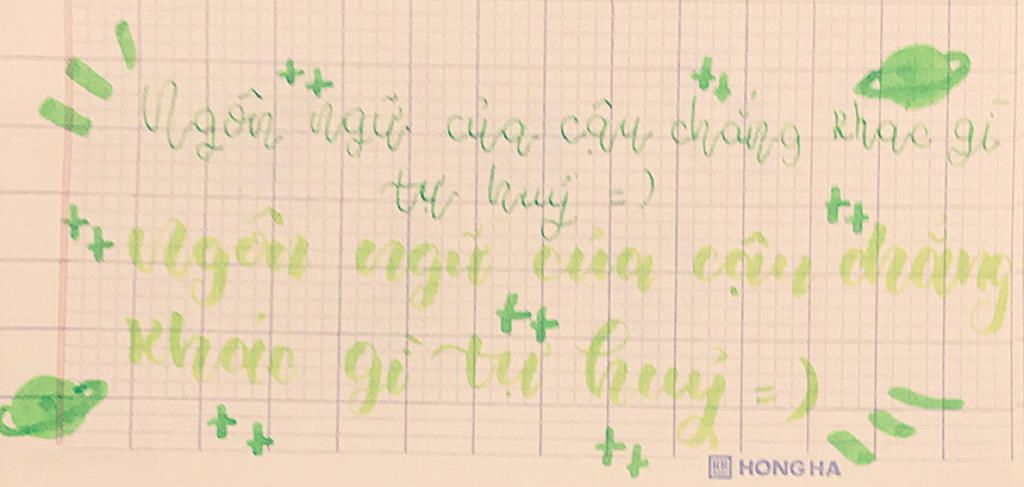 Ngôn ngữ của cậu chẳng khác gì
tự huỷ =)
Ngôn ngữ của cậu chẳng
khác gì tự huỷ =)
HONG HA